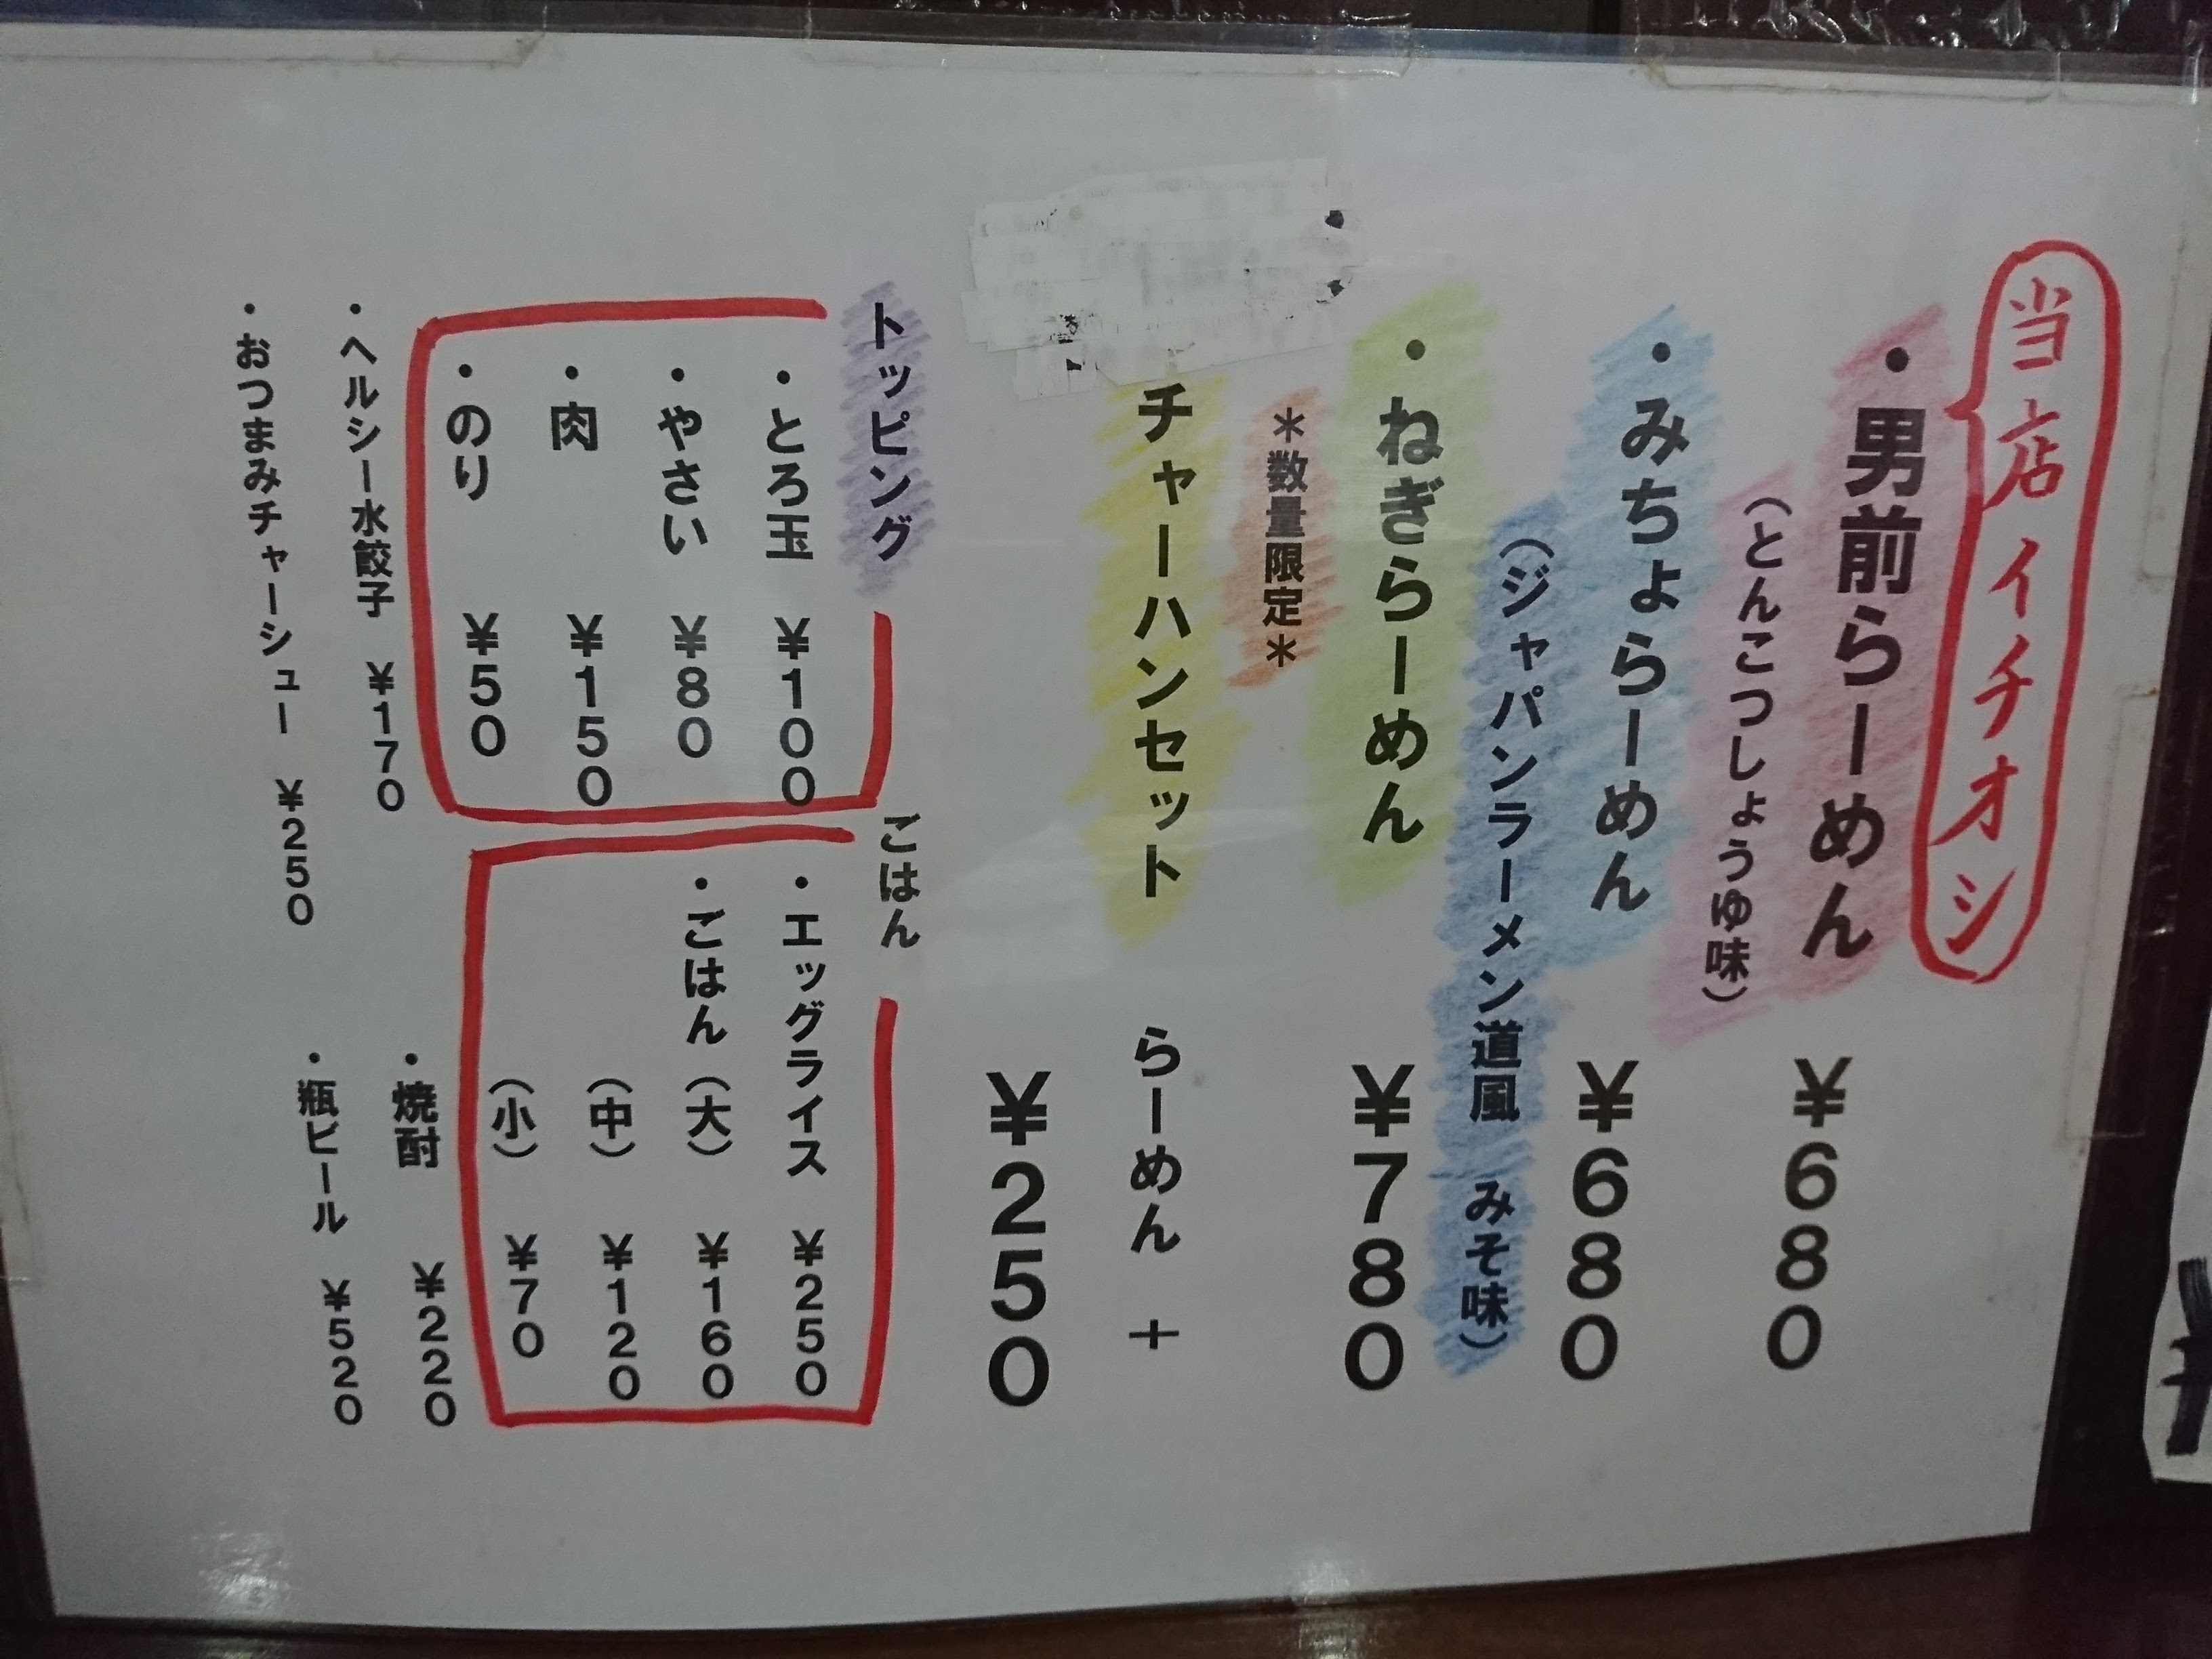 当店イチオシ
・男前らーめん ￥６８０
（とんこつしょうゆ味）
・みちょらーめん ￥６８０
（ジャパンラーメン道風 みそ味）
・ねぎらーめん ￥７８０
＊数量限定＊
チャーハンセット らーめん ＋
￥２５０
トッピング
・とろ玉 ￥１００
・やさい ￥８０
・肉 ￥１５０
・のり ￥５０
ごはん
・エッグライス ￥２５０
・ごはん（大） ￥１６０
（中） ￥１２０
（小） ￥７０
・ヘルシー水餃子 ￥１７０
・焼酎 ￥２２０
・おつまみチャーシュー ￥２５０
・瓶ビール ￥５２０